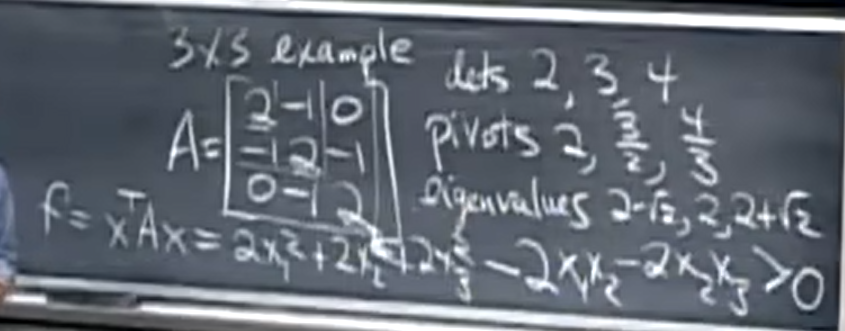 3x3 example
A = [2 -1 0
-1 2 -1
0 -1 2]
dets 2, 3, 4
pivots 2, 3/2, 4/3
eigenvalues 2-√2, 2, 2+√2
f = xᵀAx = 2x₁² + 2x₂² + 2x₃² - 2x₁x₂ - 2x₂x₃ > 0